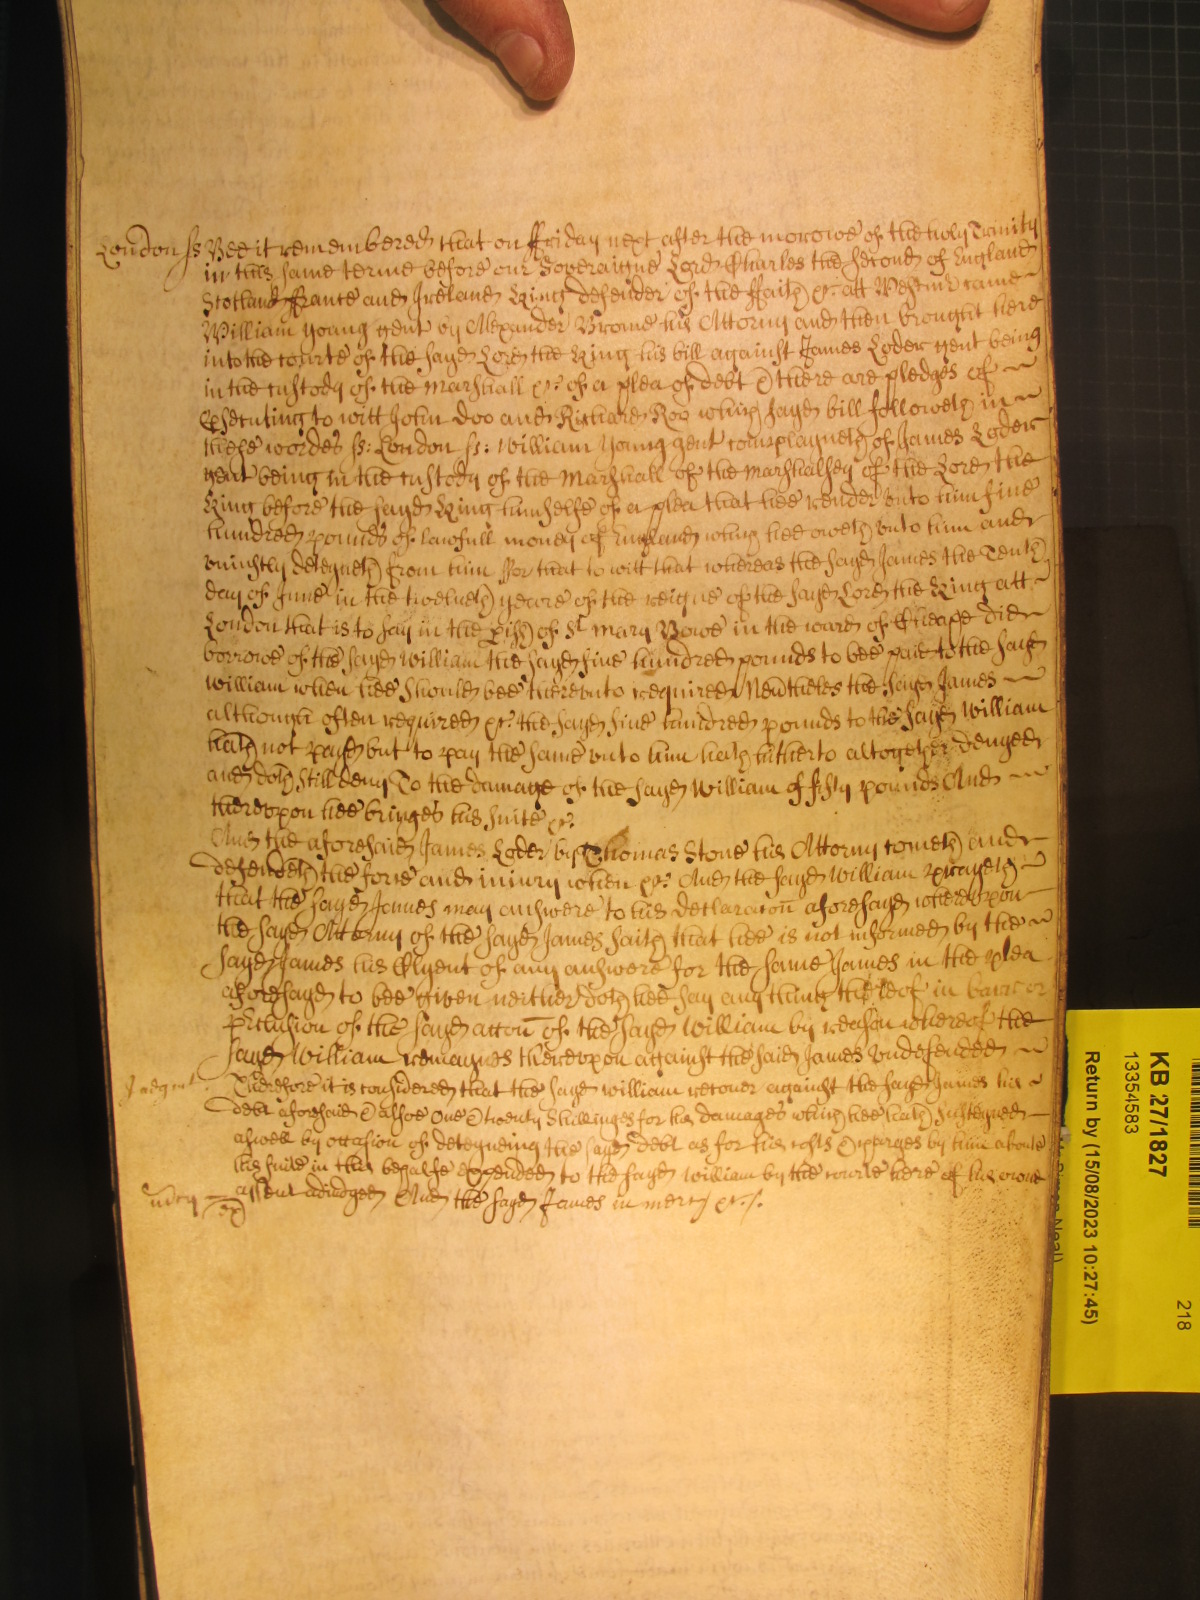 London ss Bee it remembered that on ffriday next after the morowe of the holy Trinity
in this same terme before our Soveraigne Lord Charles the Second of England
Scotland ffrance and Ireland King defender of the ffaith &c. att Westmr came
William Young gent by Alexander Brome his Attorny and then brought here
into the courte of the sayd Lord the King his bill against James Loder gent being
in the custody of the marshall &c. of a plea of debt & there are pledges of
prosecuting to witt John Doo and Richard Roo which sayd bill followeth in
these wordes ss: London ss: William Young gent complayneth of James Loder
gent being in the custody of the Marshall of the Marshalsey of the Lord the
King before the sayd King himselfe of a plea that hee render unto him five
hundred pounds of lawfull money of England which hee oweth unto him and
uniustly deteyneth from him ffor that to witt that whereas the sayd James the Tenth
day of June in the twelueth yeare of the reigne of the sayd Lord the King att
London that is to say in the pish of St. Mary Bowe in the ward of Cheape did
borrowe of the sayd William the sayd five hundred pounds to bee paid to the sayd
William when hee should bee thereunto required Neutheles the sayd James
although often required &c. the sayd five hundred pounds to the sayd William
hath not payd but to pay the same unto him hath hitherto altogether denyed
and doth still deny To the damage of the sayd William of fifty pounds And
thereupon hee bringes his suite &c.
And the aforesaid James Loder by Thomas Stone his Attorny cometh and
defendeth the force and iniury when &c. And the sayd William prayeth
that the sayd James may answere to his declaracon aforesayd whereupon
the sayd Attorny of the sayd James saith that hee is not informed by the
sayd James his Clyent of any answere for the same James in the plea
aforesayd to bee given neither doth hee say any thing thereof in barr or
preclusion of the sayd accon of the sayd William by reason whereof the
sayd William remaynes thereupon against the said James undefended
Judgmt. Therefore it is considered that the sayd William recover against the sayd James his
debt aforesaid & alsoe one & twenty shillinges for his damages which hee hath susteyned
aswell by occasion of deteyneing the sayd debt as for his costs & charges by him about
his suite in this behalfe expended to the sayd William by the courte here of his owne
mercy assent adiudged And the sayd James in mercy &c.
KB 27/1827
13354583
218
Return by (15/08/2023 10:27:45)